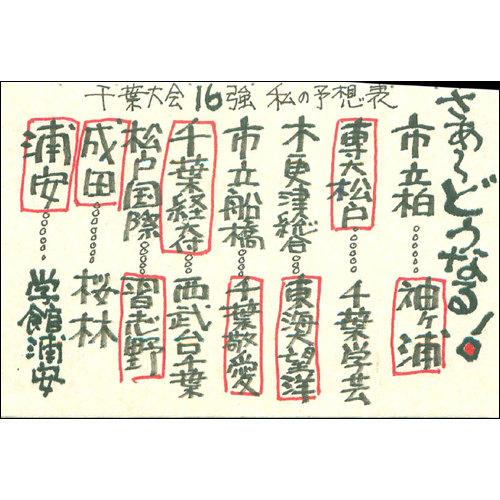 千葉大会16強 私の予想表
さあ〜どうなる!
市立柏……袖ヶ浦
専大松戸……千葉学芸
木更津総合……東海大望洋
市立船橋……千葉敬愛
千葉経大付……西武台千葉
松戸国際……習志野
成田……桜林
浦安……学館浦安